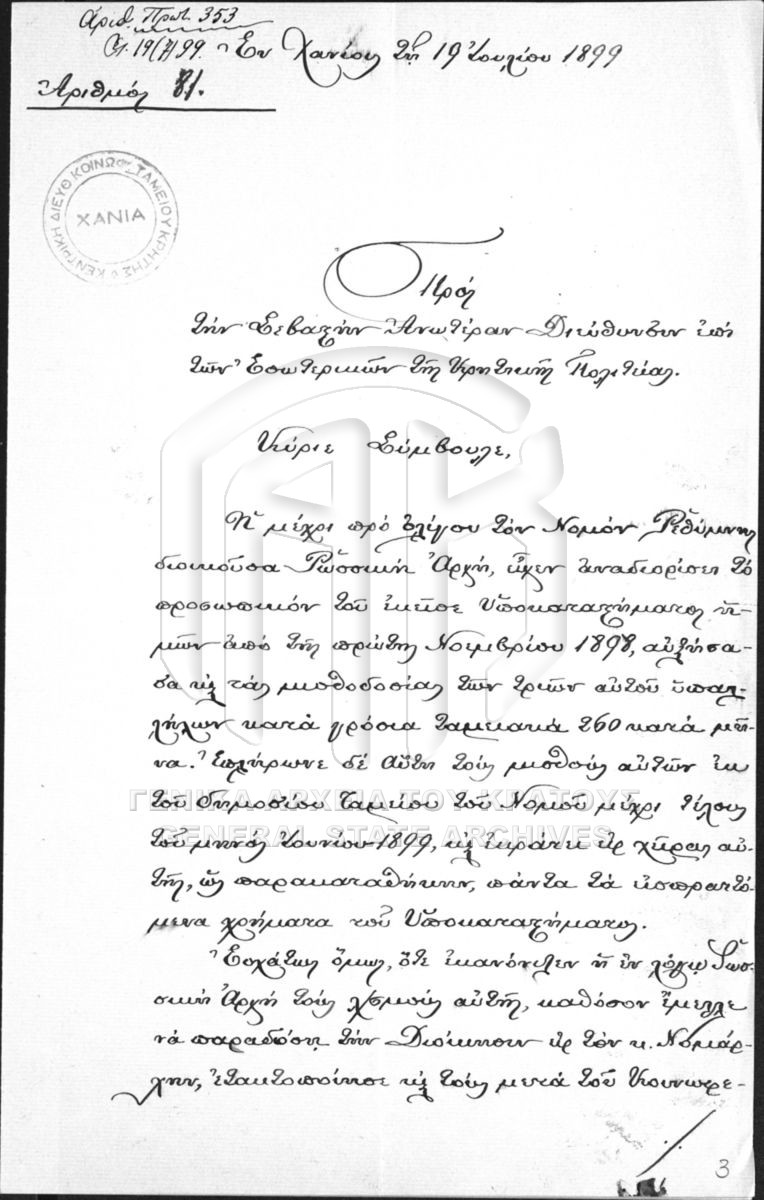 Ἀριθ. Πρωτ. 353
19/7/99. Ἐν Χανίοις τῇ 19 Ἰουλίου 1899
Ἀριθμός 81.
ΚΕΝΤΡΙΚΗ ΔΙΕΥΘ ΚΟΙΝΩΦ ΤΑΜΕΙΟΥ ΚΡΗΤΗΣ
ΧΑΝΙΑ
Πρός
τὴν Σεβαστὴν Ἀνωτέραν Διεύθυνσιν ἐπὶ
τῶν Ἐσωτερικῶν τῆς Κρητικῆς Πολιτείας.
Κύριε Σύμβουλε,
Ἡ μέχρι πρὸ ὀλίγου τὸν Νομὸν Ῥεθύμνης
διοικοῦσα Ῥωσσικὴ Ἀρχή, εἶχεν ἀναδιορίσει τὸ
προσωπικὸν τοῦ ἐκεῖσε Ὑποκαταστήματος ἡ-
μῶν ἀπὸ τῆς πρώτης Νοεμβρίου 1898, αὐξήσα-
σα κ̣ τὰς μισθοδοσίας τῶν τριῶν αὐτοῦ ὑπαλ-
λήλων κατὰ γρόσια ταμειακὰ 260 κατὰ μῆ-
να. Ἐπλήρωνε δὲ αὕτη τοὺς μισθοὺς αὐτῶν ἐκ
τοῦ δημοσίου Ταμείου τοῦ Νομοῦ μέχρι τέλους
τοῦ μηνὸς Ἰουνίου 1899, κ̣ ἐκράτει εἰς χεῖρας αὐ-
τῆς, ὡς παρακαταθήκην, πάντα τὰ εἰσπραττό-
μενα χρήματα τοῦ Ὑποκαταστήματος.
Ἐσχάτως ὅμως, ὅτε ἐκανόνιζεν ἡ ἐν λόγῳ Ῥωσ-
σικὴ Ἀρχὴ τοὺς χεσμοὺς αὐτῆς, καθόσον ἔμελλε
νὰ παραδώσῃ τὴν Διοίκησιν εἰς τὸν κ. Νομάρ-
χην, ἐτακτοποίησε κ̣ τοὺς μετὰ τοῦ Κοινωφε-
./.
3
ΓΕΝΙΚΑ ΑΡΧΕΙΑ ΤΟΥ ΚΡΑΤΟΥΣ
GENERAL STATE ARCHIVES